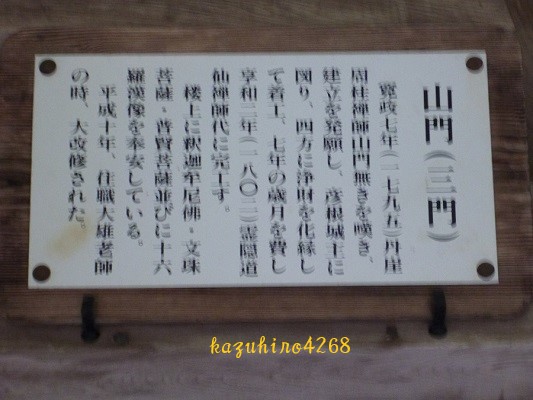 山門(三門)
寛政七年(一七九五)丹崖
周桂禅師山門無きを嘆き、
建立を発願し、彦根城主に
図り、四方に浄財を化縁し
て着工、七年の歳月を費し
享和二年(一八〇二)霊隠道
仙禅師代に完工す。
楼上に釈迦牟尼佛・文珠
菩薩・普賢菩薩並びに十六
羅漢像を奉安している。
平成十年、住職大雄老師
の時、大改修された。
kazuhiro4268